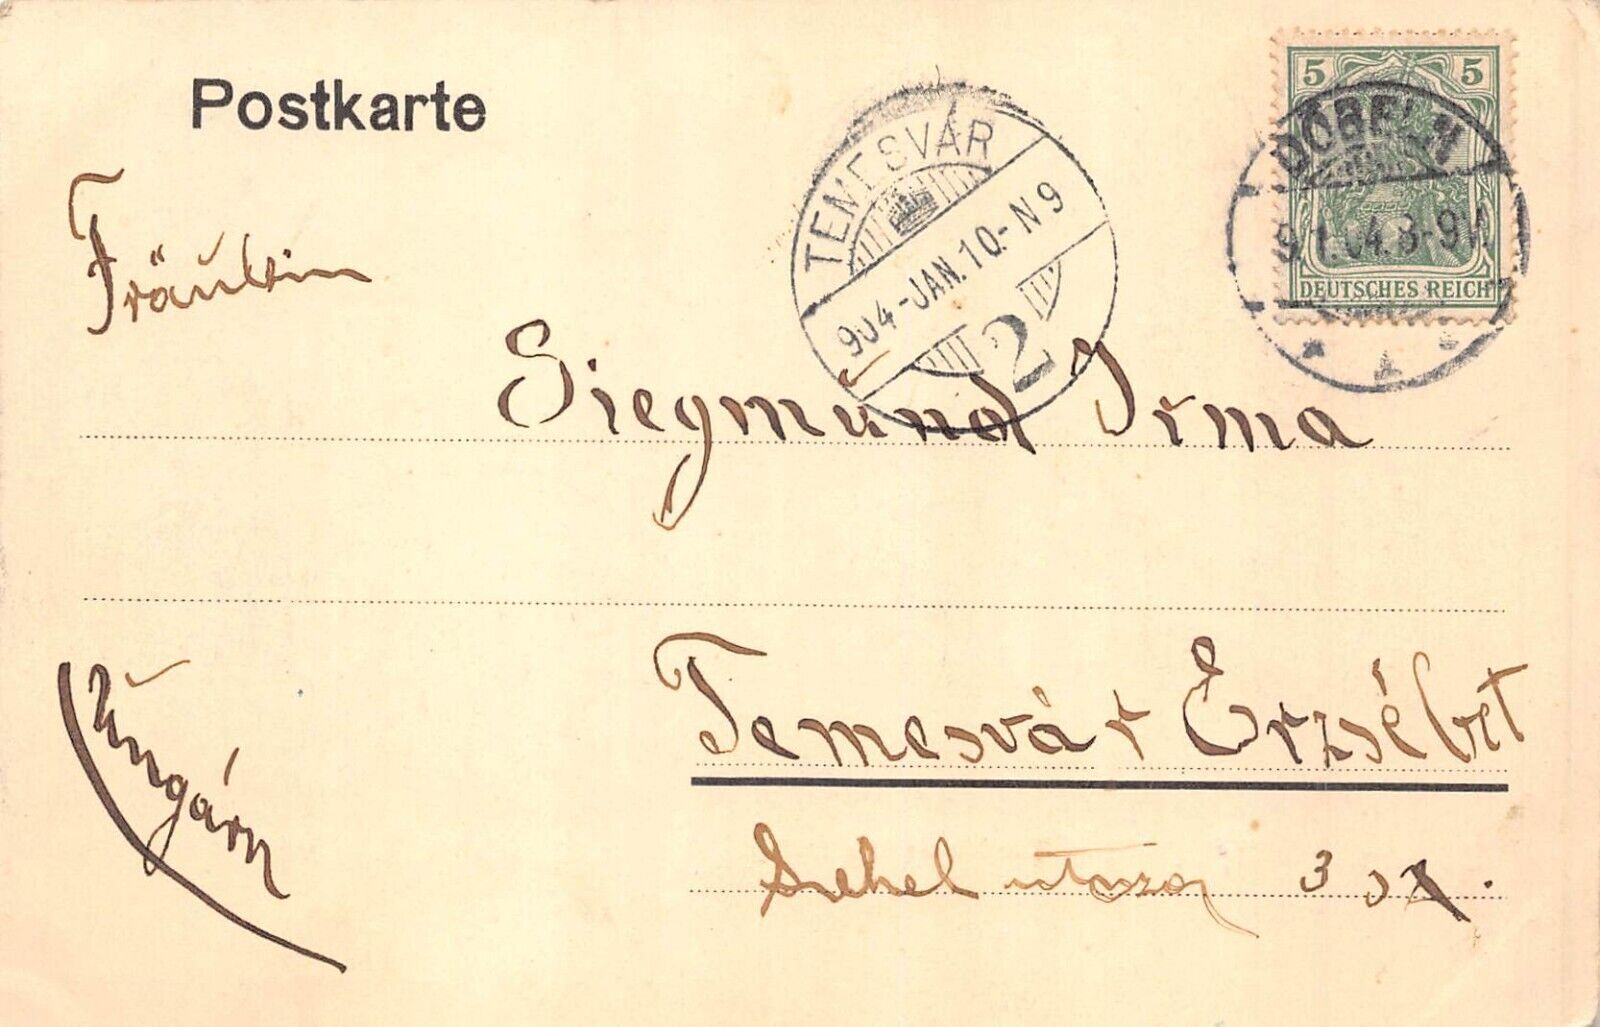 Postkarte
5 5
DEUTSCHES REICH
DÖBELN
9.1.04.8-9V.
TEMESVÁR
904-JAN.10-N9
2
Fräulein
Siegmund Irma
Temesvár Erzsébet
utcza 3
Ungarn